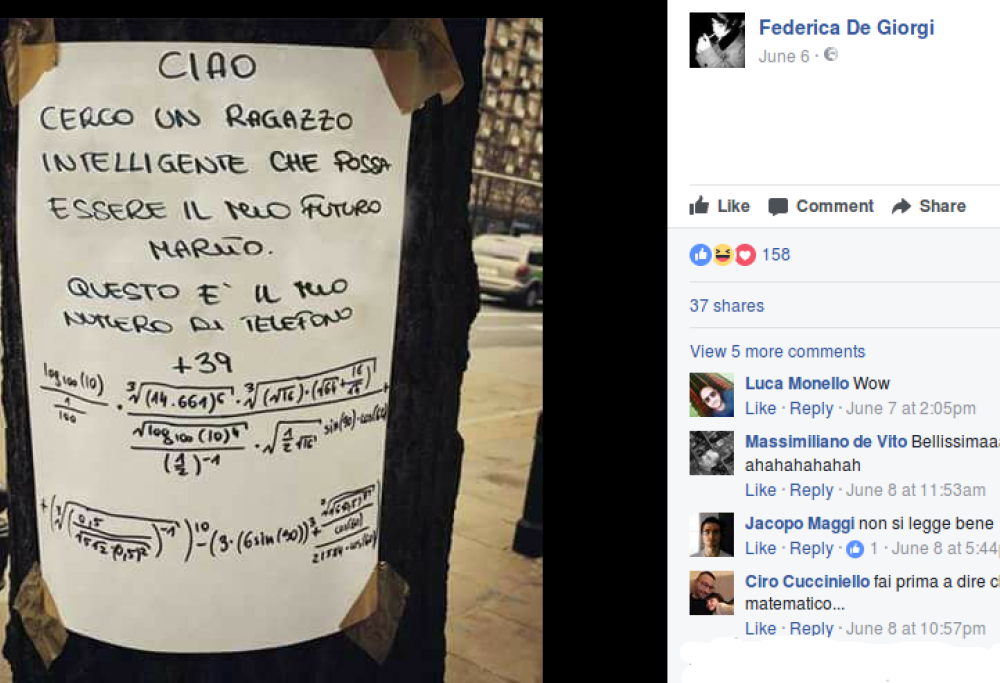 CIAO
CERCO UN RAGAZZO
INTELLIGENTE CHE POSSA
ESSERE IL MIO FUTURO
MARITO.
QUESTO E` IL MIO
NUMERO DI TELEFONO
+39
log100(10)
1
100
·
∛(14.661)⁶ · ∛(√16)·(√64+16
√log100(10)⁴
(1/2)⁻¹
· √1/2 √16
sin(90)-cos(60)
+(∛(0,5
)⁻¹)¹⁰-(3·(6sin(90))³+
cos(60)
Federica De Giorgi
June 6 ·
Like Comment Share
158
37 shares
View 5 more comments
Luca Monello Wow
Like · Reply · June 7 at 2:05pm
Massimiliano de Vito Bellissimaa
ahahahahahah
Like · Reply · June 8 at 11:53am
Jacopo Maggi non si legge bene
Like · Reply · 1 · June 8 at 5:44
Ciro Cucciniello fai prima a dire
matematico...
Like · Reply · June 8 at 10:57pm